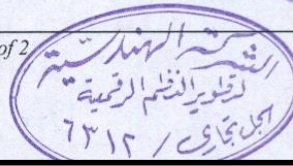 of 2
الشركة الهندسية
لتطوير النظم الرقمية
سجل تجاري / ٦٣١٢